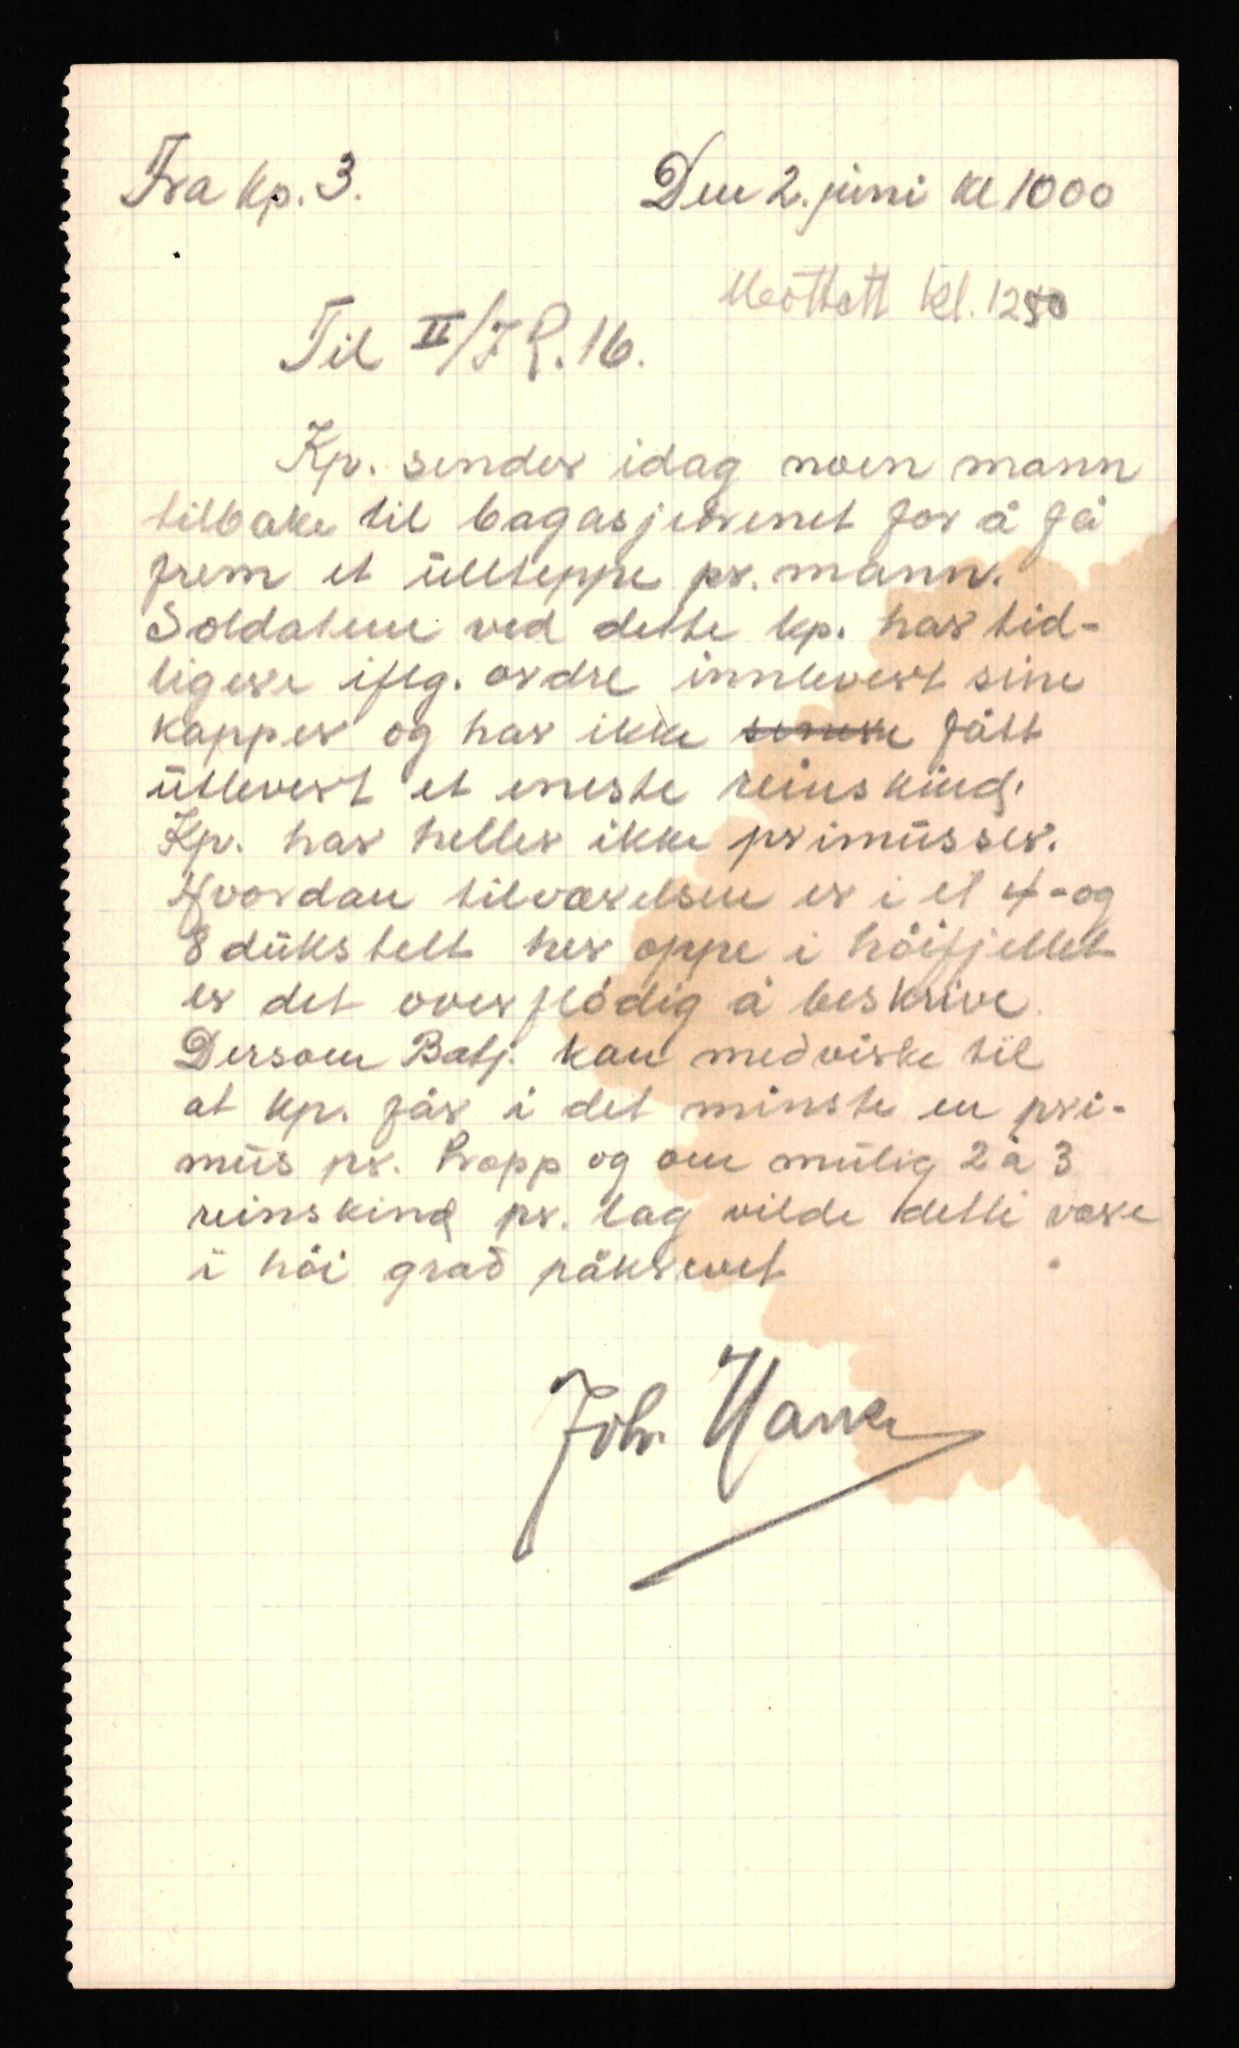 Fra kp. 3.
Den 2. juni kl 1000
Möttatt kl. 1250
Til II/I.R. 16.
Kp. sender idag noen mann
tilbake til bagasjetrenet for å få
frem et ullteppe pr. mann.
Soldatene ved dette kp. har tid-
ligere iflg. ordre innlevert sine
kapper og har ikke senere fått
utlevert et eneste reinskind.
Kp. har heller ikke primusser.
Hvordan tilværelsen er i et 4-og
8 dukstelt her oppe i höifjellet
er det overflödig å beskrive.
Dersom Batj. kan medvirke til
at kp. får i det minste en pri-
mus pr. tropp og om mulig 2 à 3
reinskind pr. lag vilde dette være
i höi grad påkrevet
Joh.